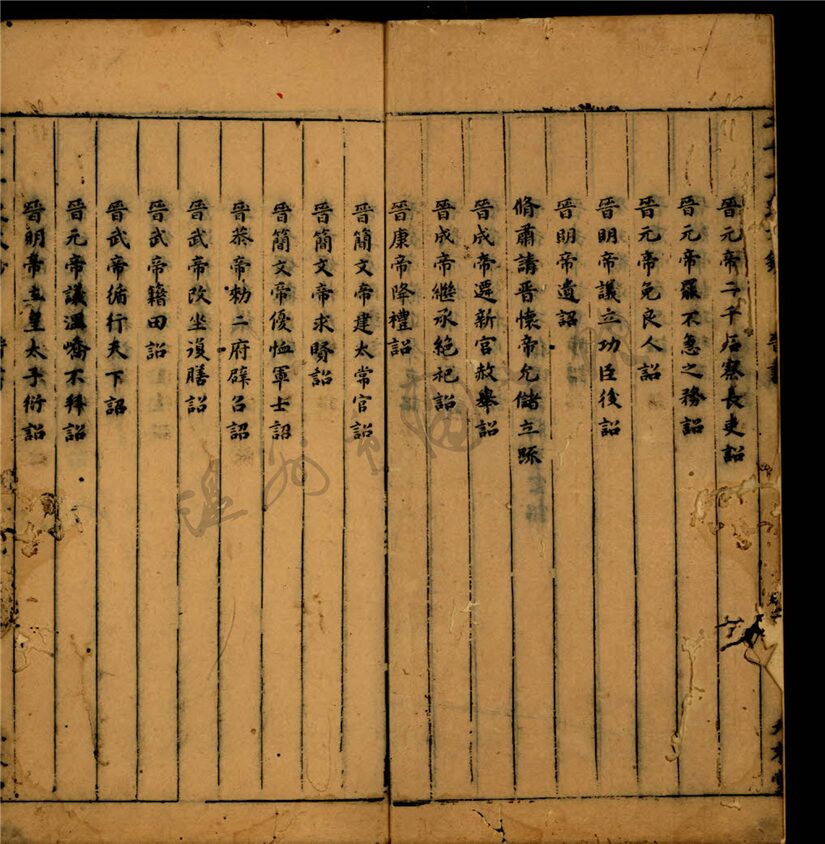 晉元帝二千石察長吏詔
晉元帝罷不急之務詔
晉元帝免良人詔
晉明帝議立功臣後詔
晉明帝遺詔
脩肅請晉懷帝允儲立疏
晉成帝選新官敕舉詔
晉成帝繼承絶祀詔
晉康帝降禮詔
晉簡文帝建太常官詔
晉簡文帝求賢詔
晉簡文帝優恤軍士詔
晉恭帝勑二府辟召詔
晉武帝改坐復膳詔
晉武帝籍田詔
晉武帝循行天下詔
晉元帝議溫嶠不拜詔
晉明帝立皇太子衍詔